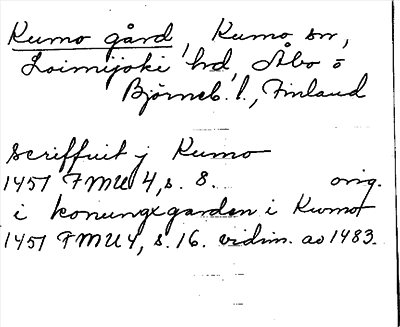 Kumo gård, Kumo sn,
Loimijoki hd, Åbo o
Björneb. l., Finland
scriffuit j Kumo
1451 FMU 4, s. 8. orig.
i konungxgarden i Kumo
1451 FMU 4, s. 16. vidim. av 1483.